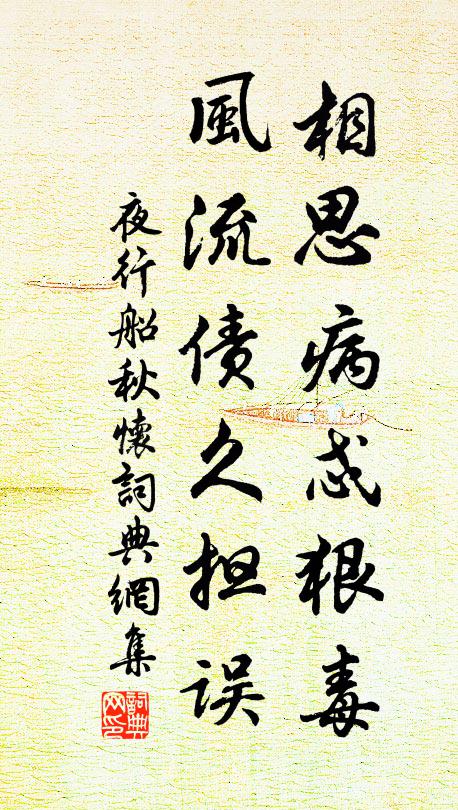 相思病忒根毒
風流债久担误
夜行船秋懷詞典網集
詞典
网印